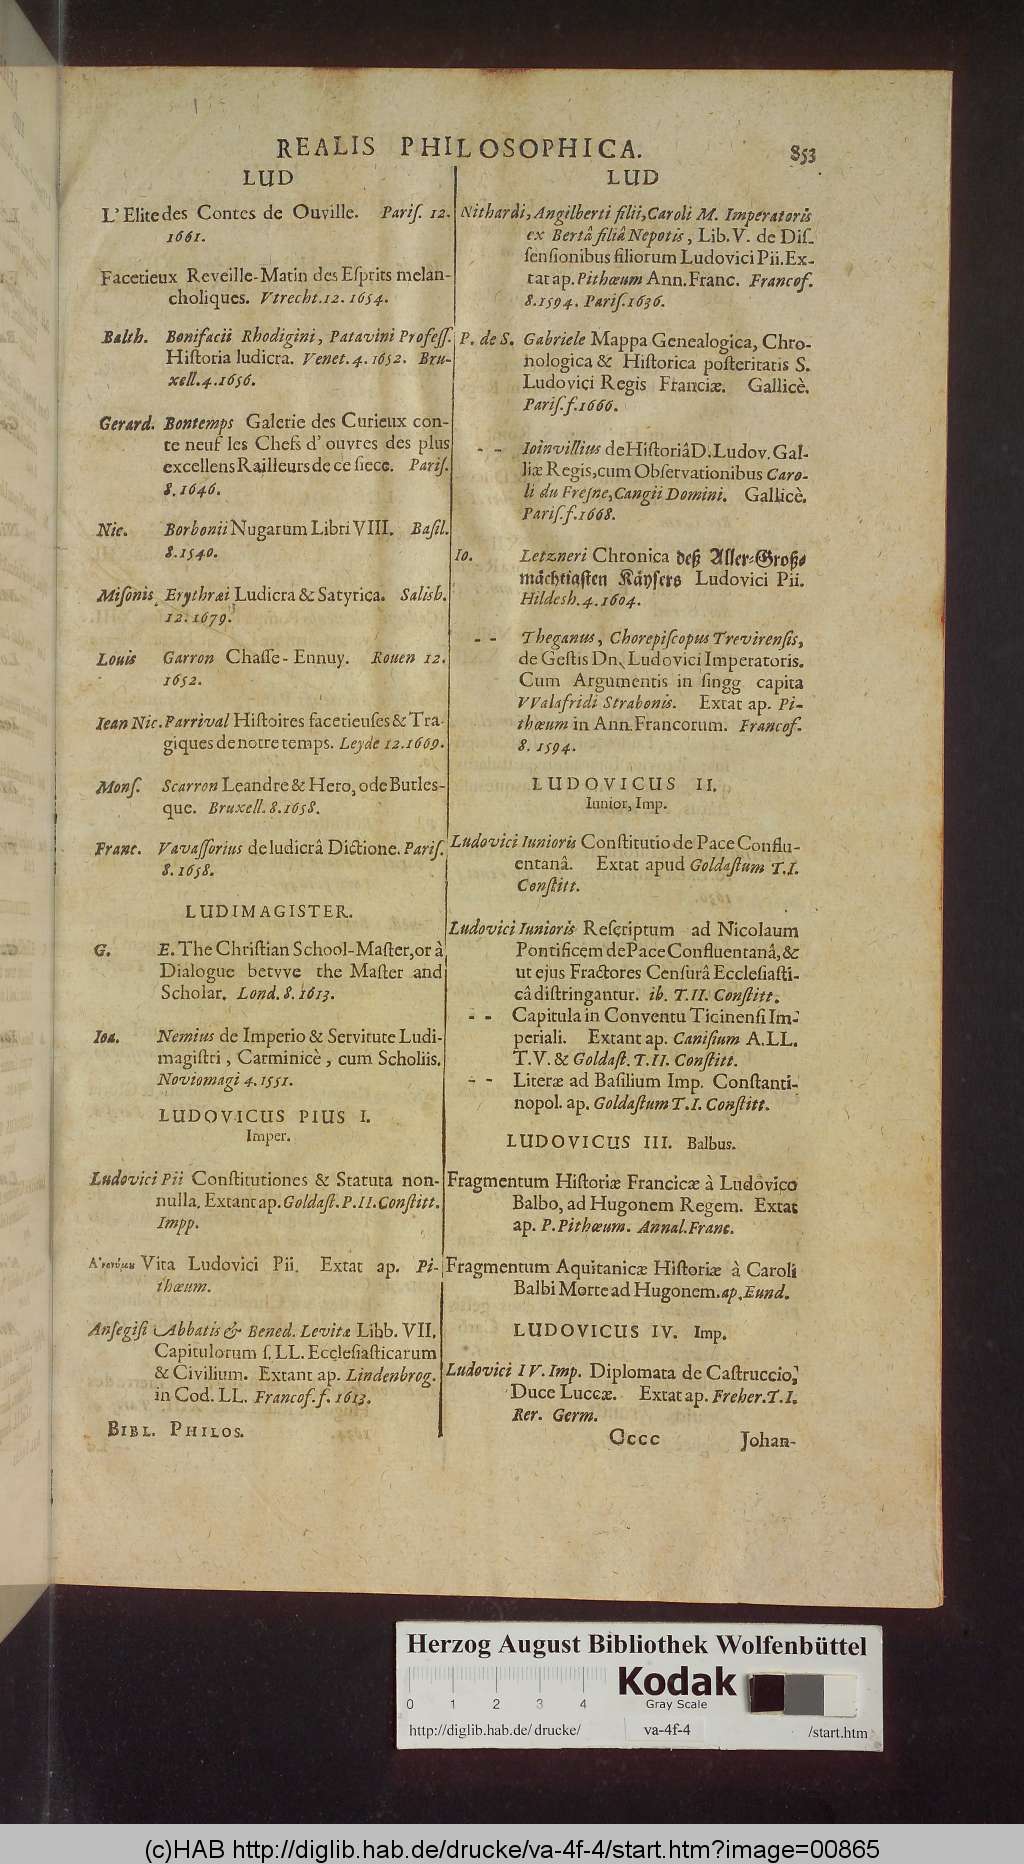 REALIS PHILOSOPHICA.
853
LUD
L'Elite des Contes de Ouville. Pariſ. 12.
1661.
Facetieux Reveille-Matin des Eſprits melan-
choliques. Vtrecht. 12. 1654.
Balth. Bonifacii Rhodigini, Patavini Profeſſ.
Hiſtoria ludicra. Venet. 4. 1652. Bru-
xell. 4. 1656.
Gerard. Bontemps Galerie des Curieux con-
te neuf les Chefs d'ouvres des plus
excellens Railleurs de ce ſiece. Pariſ.
8. 1646.
Nic. Borbonii Nugarum Libri VIII. Baſil.
8. 1540.
Miſonis Erythræi Ludicra & Satyrica. Salisb.
12. 1679.
Louis Garron Chaſſe-Ennuy. Rouen 12.
1652.
Iean Nic. Parrival Hiſtoires facetieuſes & Tra-
giques de notre temps. Leyde 12. 1669.
Monſ. Scarron Leandre & Hero, ode Burles-
que. Bruxell. 8. 1658.
Franc. Vavaſſorius de ludicrâ Dictione. Pariſ.
8. 1658.
LUDIMAGISTER.
G. E. The Chriſtian School-Maſter, or à
Dialogue betvve the Maſter and
Scholar. Lond. 8. 1613.
Ioa. Nemius de Imperio & Servitute Ludi-
magiſtri, Carminicè, cum Scholiis.
Noviomagi 4. 1551.
LUDOVICUS PIUS I.
Imper.
Ludovici Pii Conſtitutiones & Statuta non-
nulla. Extant ap. Goldaſt. P. II. Conſtitt.
Impp.
Vita Ludovici Pii. Extat ap. Pi-
thæum.
Anſegiſi Abbatis & Bened. Levitæ Libb. VII.
Capitulorum ſ. LL. Eccleſiaſticarum
& Civilium. Extant ap. Lindenbrog.
in Cod. LL. Francof. f. 1613.
BIBL. PHILOS.
LUD
Nithardi, Angilberti filii, Caroli M. Imperatoris
ex Bertâ filiâ Nepotis, Lib. V. de Diſ-
ſenſionibus filiorum Ludovici Pii. Ex-
tat ap. Pithœum Ann. Franc. Francof.
8. 1594. Pariſ. 1636.
P. de S. Gabriele Mappa Genealogica, Chro-
nologica & Hiſtorica poſteritatis S.
Ludovici Regis Franciæ. Gallicè.
Pariſ. f. 1666.
- - Ioinvillius de Hiſtoriâ D. Ludov. Gal-
liæ Regis, cum Obſervationibus Caro-
li du Freſne, Cangii Domini. Gallicè.
Pariſ. f. 1668.
Io. Letzneri Chronica deß Aller-Groß-
mächtigſten Käyſers Ludovici Pii.
Hildesh. 4. 1604.
- - Theganus, Chorepiſcopus Trevirenſis,
de Geſtis Dn. Ludovici Imperatoris.
Cum Argumentis in ſingg capita
VValafridi Strabonis. Extat ap. Pi-
thœum in Ann. Francorum. Francof.
8. 1594.
LUDOVICUS II.
Iunior, Imp.
Ludovici Iunioris Conſtitutio de Pace Conflu-
entanâ. Extat apud Goldaſtum T. I.
Conſtitt.
Ludovici Iunioris Reſcriptum ad Nicolaum
Pontificem de Pace Confluentanâ, &
ut ejus Fractores Cenſurâ Eccleſiaſti-
câ diſtringantur. ib. T. II. Conſtitt.
- - Capitula in Conventu Ticinenſi Im-
periali. Extant ap. Caniſium A. LL.
T. V. & Goldaſt. T. II. Conſtitt.
- - Literæ ad Baſilium Imp. Conſtanti-
nopol. ap. Goldaſtum T. I. Conſtitt.
LUDOVICUS III. Balbus.
Fragmentum Hiſtoriæ Francicæ à Ludovico
Balbo, ad Hugonem Regem. Extat
ap. P. Pithœum. Annal. Franc.
Fragmentum Aquitanicæ Hiſtoriæ à Caroli
Balbi Morte ad Hugonem. ap. Eund.
LUDOVICUS IV. Imp.
Ludovici IV. Imp. Diplomata de Caſtruccio,
Duce Luccæ. Extat ap. Freher. T. I.
Rer. Germ.
Occc Johan-
Herzog August Bibliothek Wolfenbüttel
Kodak
Gray Scale
0 1 2 3 4
http://diglib.hab.de/drucke/ va-4f-4 /start.htm
(c)HAB http://diglib.hab.de/drucke/va-4f-4/start.htm?image=00865